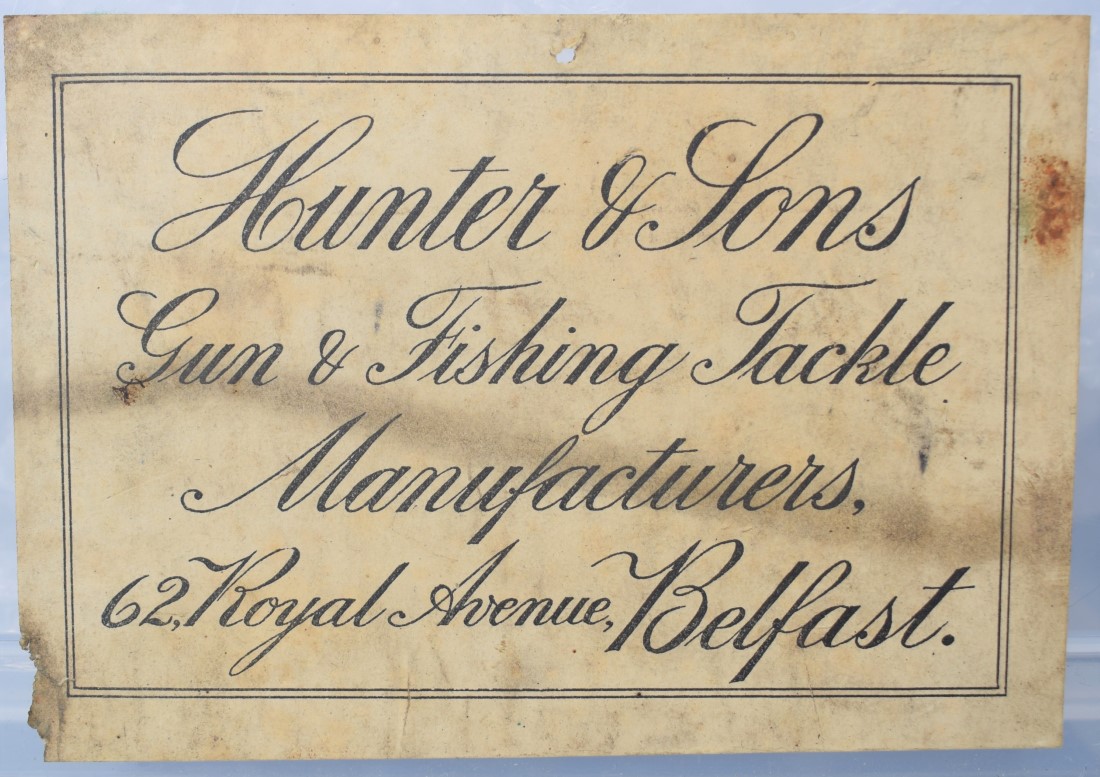 Hunter & Sons
Gun & Fishing Tackle
Manufacturers,
62, Royal Avenue, Belfast.